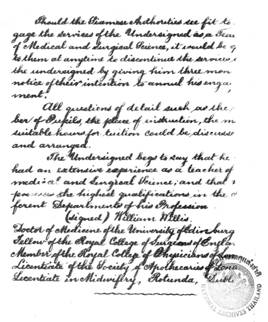 Should the Siamese Authorities see fit to
gage the services of the Undersigned as a
of Medical and Surgical Science, it would be
to them at anytime to discontinue the
the undersigned by giving him three mon
notice of their intention to annul his enga
ment.
All questions of detail such as the
ber of Pupils, the place of instruction, the
suitable hours for tuition could be discuss
and arranged.
The Undersigned begs to say that he
had an extensive experience as a teacher of
medical and Surgical Science; and that
possesses the highest qualifications in the
ferent Departments of his Profession
(signed) William Willis.
Doctor of Medicine of the University of Edinburg
Fellow of the Royal College of Surgeons of Englan
Member of the Royal College of Physicians of Lon
Licentiate of the Society of Apothecaries of Lon
Licentiate in Midwifery, Rotunda, Dubli
ARCHIVES THAILAND